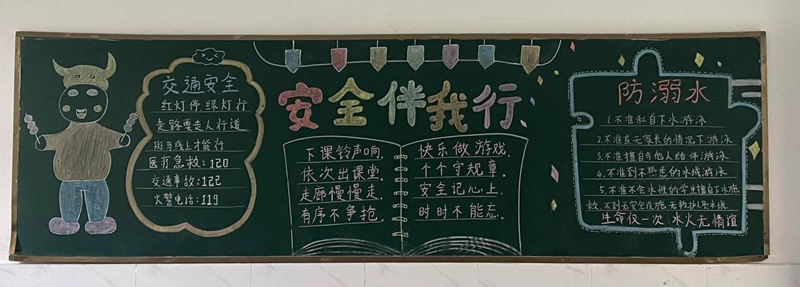 安全伴我行
交通安全
红灯停绿灯行
走路要走人行道
斑马线上才能行
医疗急救：120
交通事故：122
火警电话：119
下课铃声响，
依次出课堂
走廊慢慢走，
有序不争抢。
快乐做游戏，
个个守规章。
安全记心上，
时时不能忘。
防溺水
1.不准私自下水游泳
2.不准在无家长的情况下游泳
3.不准擅自与他人结伴游泳
4.不准到不熟悉的水域游泳
5.不准不会水性的学生擅自下水施
救，不到无安全设施、无救护人员水域。
生命仅一次 水火无情谊